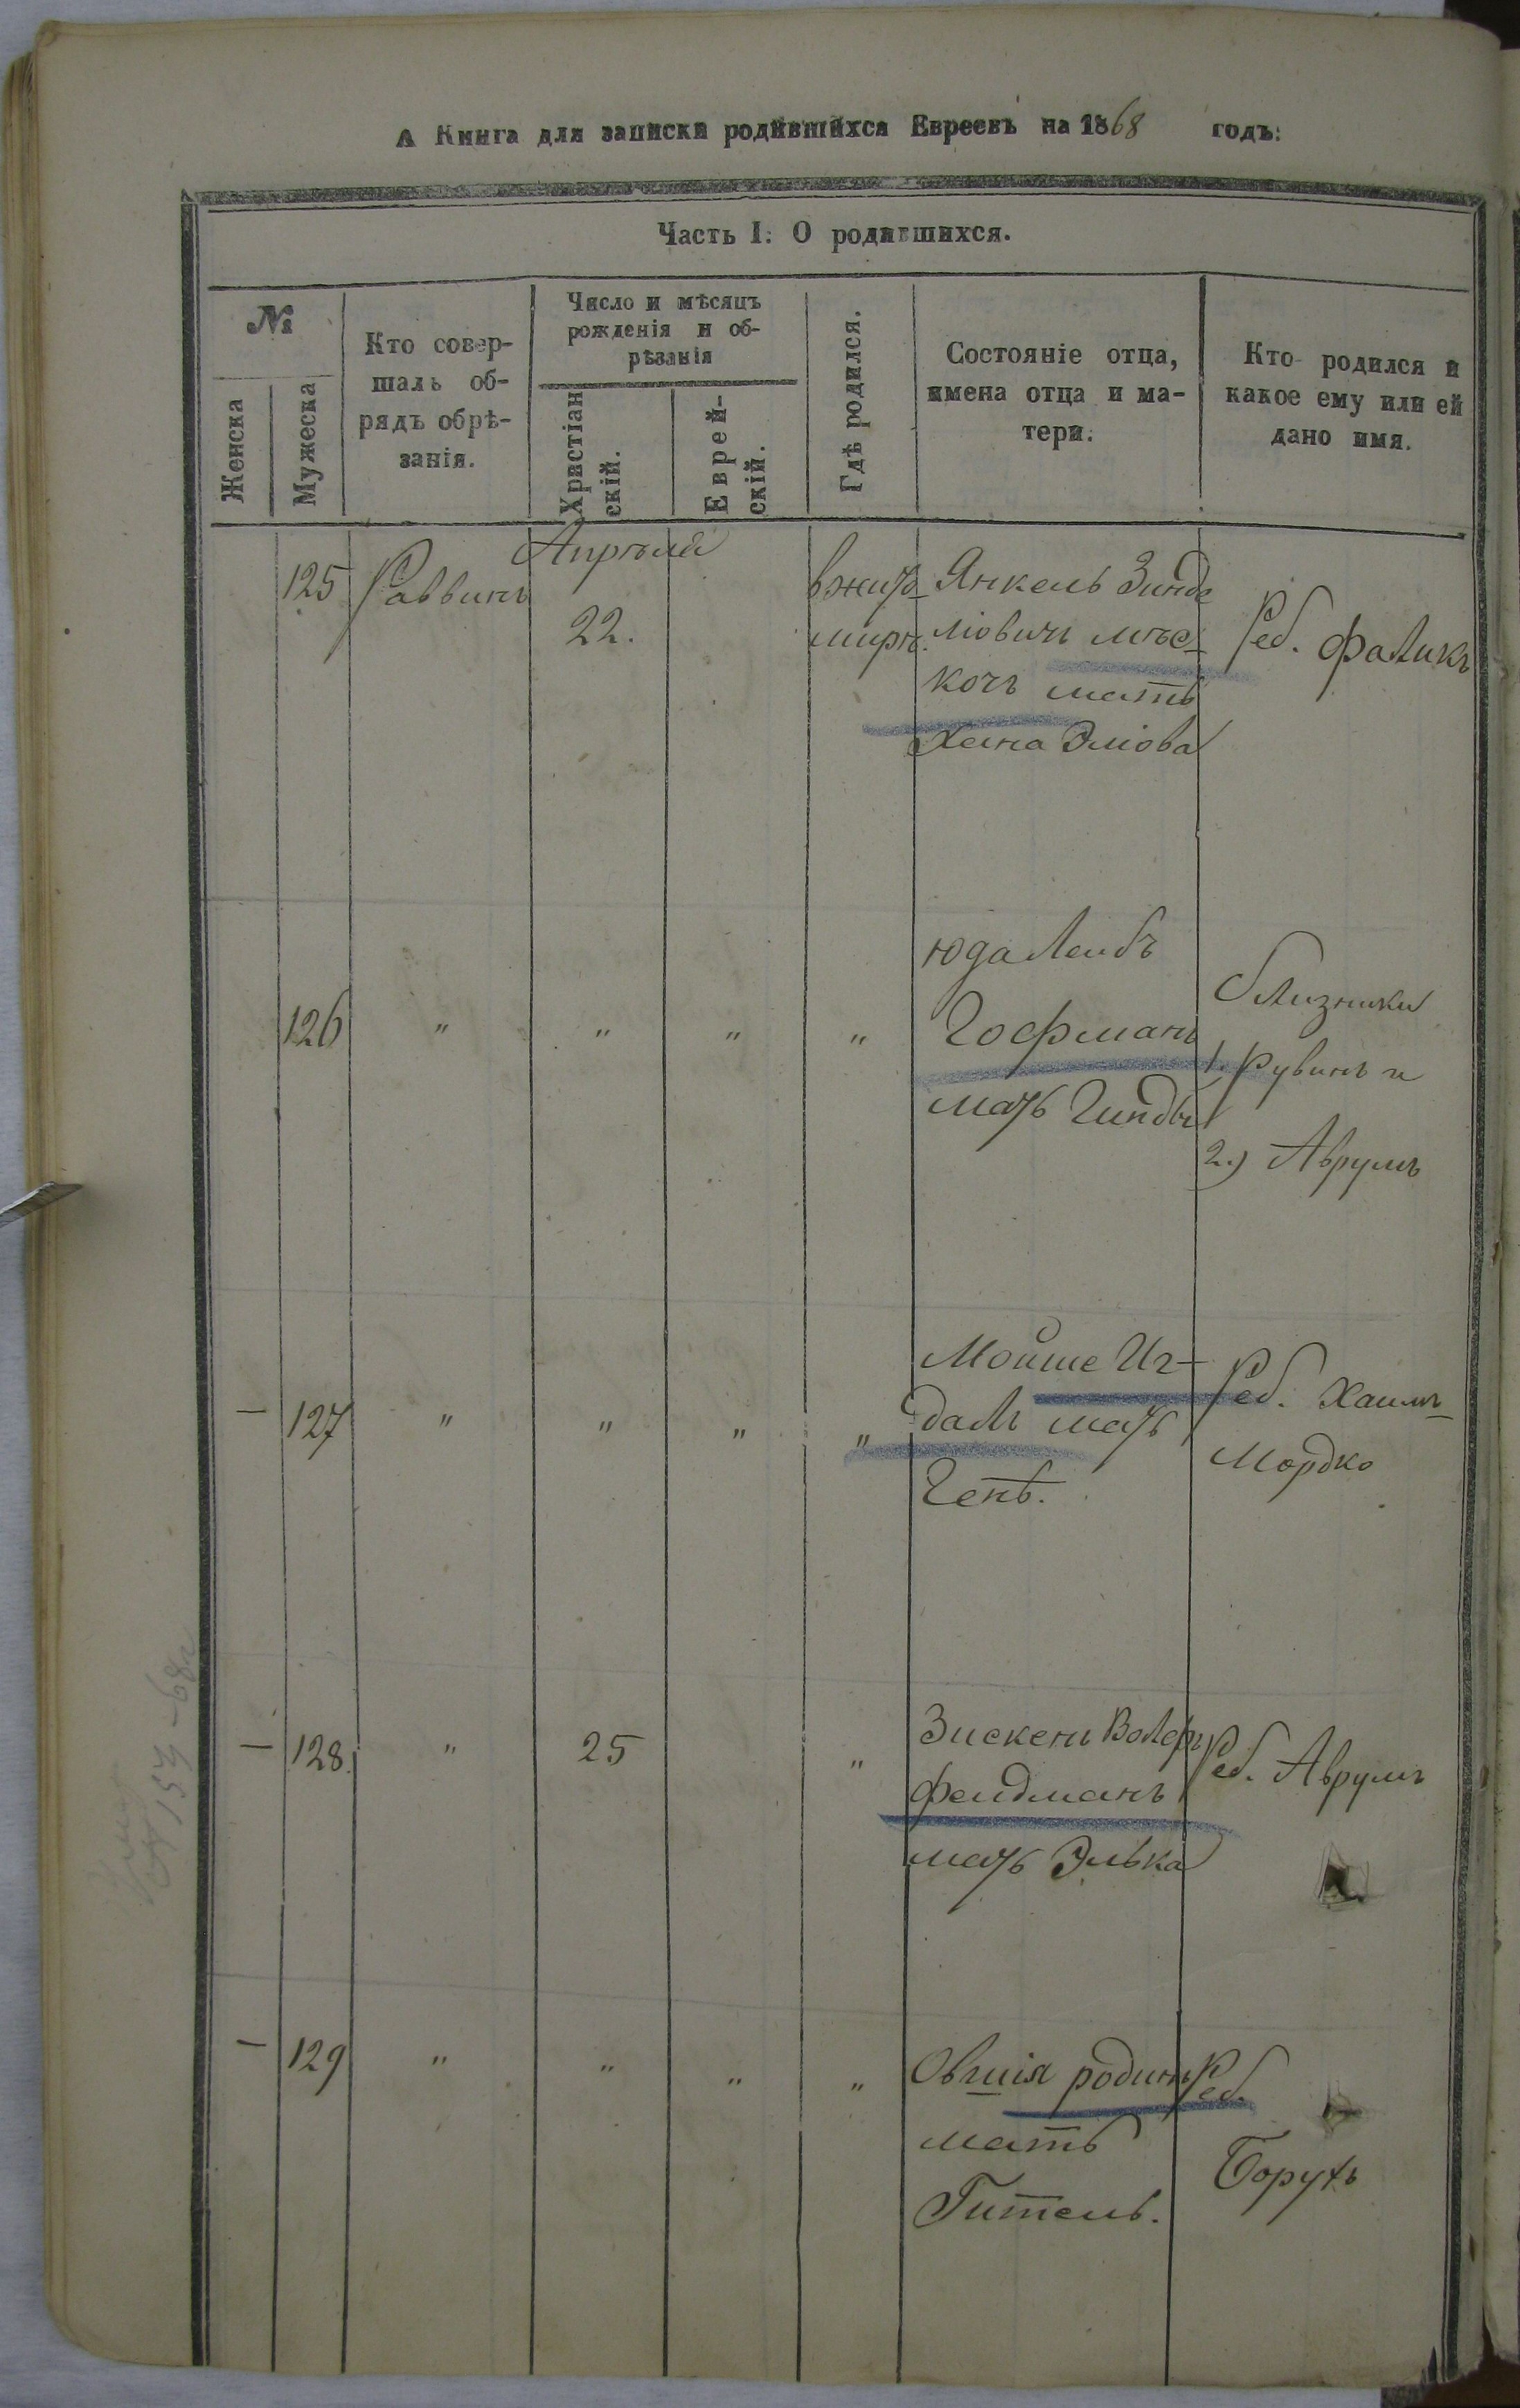 А Книга для записки родившихся Евреевъ на 1868 годъ:
Часть I: О родившихся.
№
Женска
Мужеска
Кто совер-
шалъ об-
рядъ обрѣ-
занія.
Число и мѣсяцъ
рожденія и об-
рѣзанія
Христіан
скій.
Еврей-
скій.
Гдѣ родился.
Состояніе отца,
имена отца и ма-
тери.
Кто родился и
какое ему или ей
дано имя.
Апрѣля
125 Раввинъ 22. вжито-
миръ.
Янкель Зинде
ліовичъ
мать
Хана Эліова
Реб. Фаликъ
126 " " " "
Юда Леибъ
Гофманъ
мать Гинды
близники
1. Рувинъ и
2.) Аврумъ
— 127 " " " "
Мойше Иг-
даль мать
Генѣ.
Реб. Хаимъ-
Мордко
— 128. " 25 "
Зискень Волфъ
Фелдманъ
мать Элька
Реб. Аврумъ
— 129 " " " "
Овшія родинъ
мать
Гитель.
Реб.
Борухъ